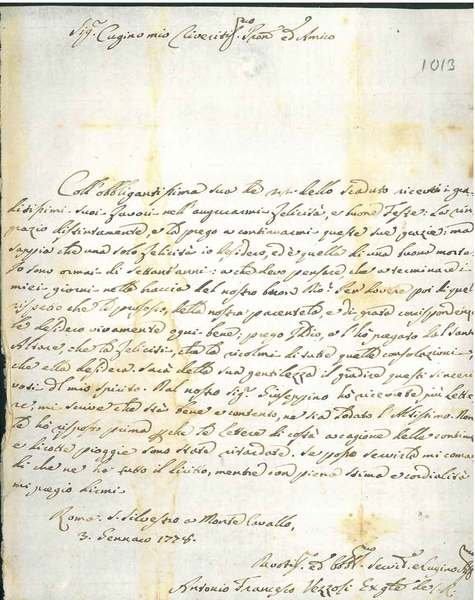 Sig.r Cugino mio Riveritiss.mo Pron. ed Amico
1013
Coll'obbligantissima sua de' dello scaduto ricevei i gra-
ditissimi suoi favori nell'augurarmi felicità, e buone Feste: La rin-
grazio distintamente, e la prego a continuarmi queste sue grazie; ma
sappia che una sola felicità io desidero, ed è quella di una buona morte.
Io sono ormai di settant'anni: a che devo pensare che a terminare i
miei giorni nelle braccia del nostro buon Dio? Per dovere poi di quel
rispetto che le professo, della nostra parentela, e di grata corrispondenza
le desidero vivamente ogni bene; priego Iddio, e l'hò pregato dal Santo
Altare, che la feliciti, e la ricolmi di tutte quelle consolazioni
che ella desidera. Sarà della sua gentilezza il gradire questi sinceri
voti del mio spirito. Dal nostro Sig.r Giuseppino hò ricevute più lette-
re; mi scrive che stà bene e contento, ne sia lodato l'Altissimo. Non
le hò risposto prima perche le lettere di costà a cagione delle continue
e dirotte pioggie sono state ritardate. Se posso servirla mi coman-
di che ne hà tutto il diritto, mentre con piena stima e cordialità
mi pregio dirmi
Roma. S. Silvestro a Monte Cavallo,
3. Gennaro 1778.
Devot.mo ed Obbl.mo Servid.e e Cugino
Antonio Francesco Vezzosi